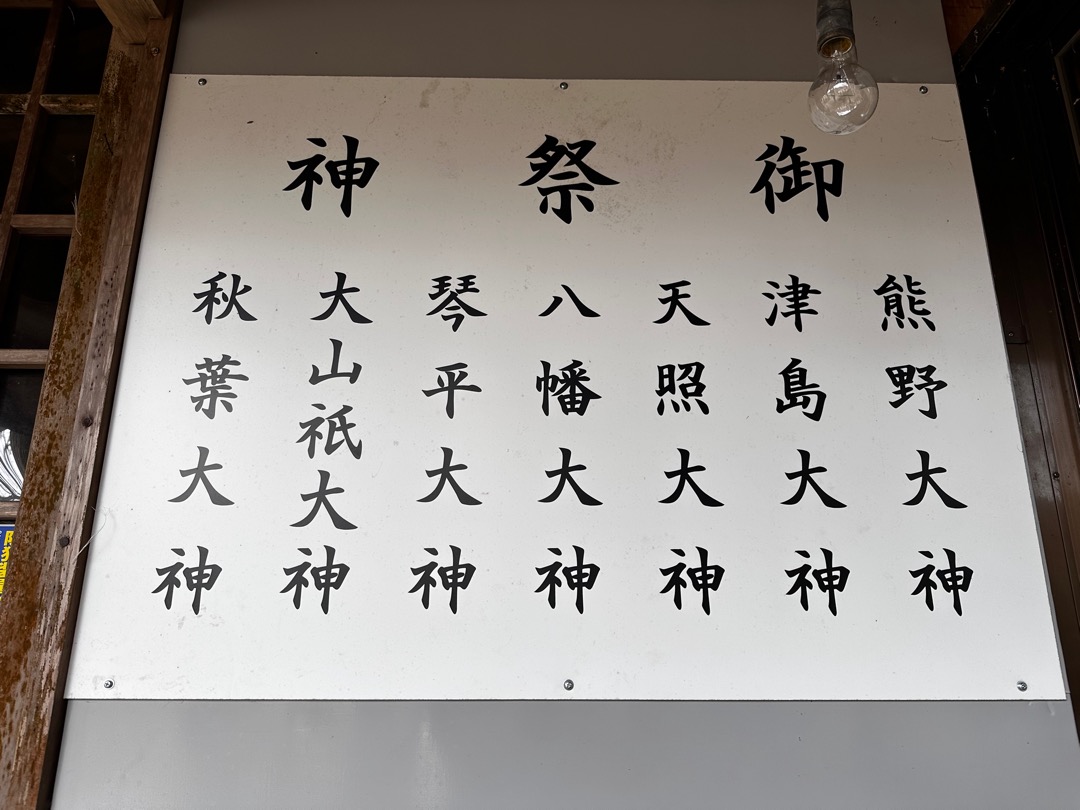 御祭神
熊野大神
津島大神
天照大神
八幡大神
琴平大神
大山祇大神
秋葉大神